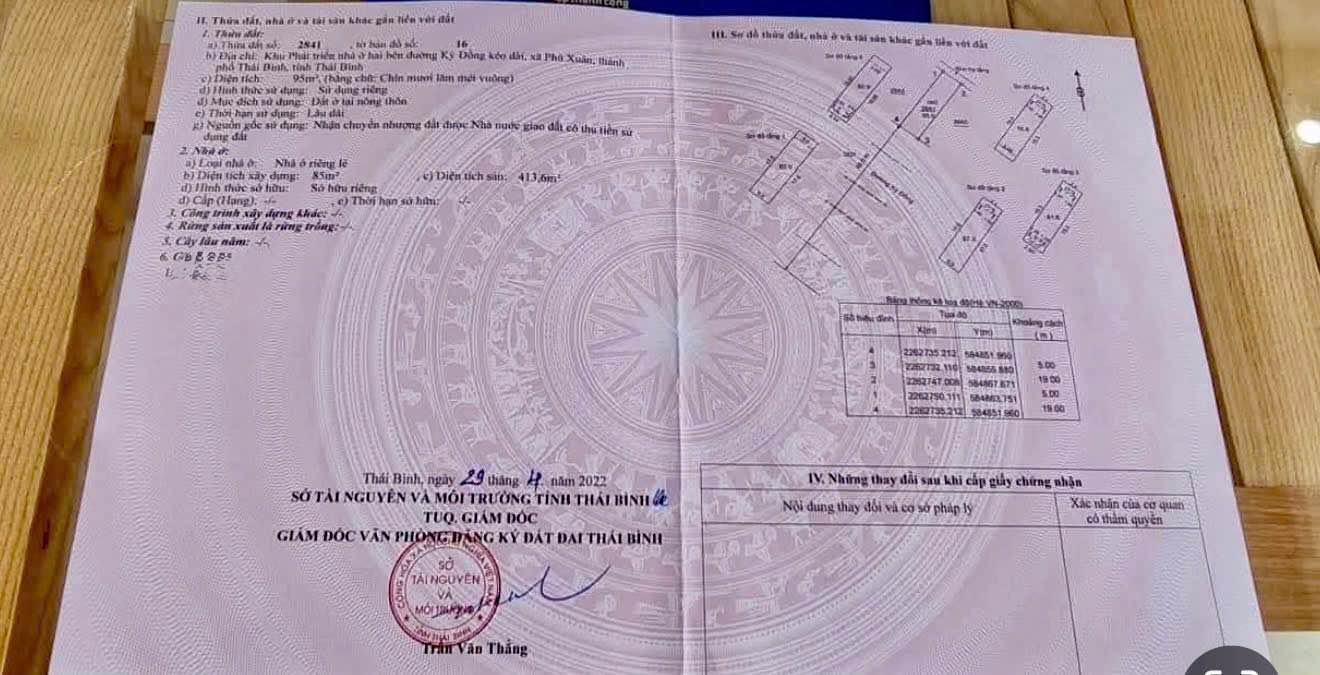 II. Thửa đất, nhà ở và tài sản khác gắn liền với đất
1. Thửa đất:
a) Thửa đất số: 2841 , tờ bản đồ số: 16
b) Địa chỉ: Khu Phát triển nhà ở hai bên đường Kỳ Đồng kéo dài, xã Phú Xuân, thành
phố Thái Bình, tỉnh Thái Bình
c) Diện tích: 95m², (bằng chữ: Chín mươi lăm mét vuông)
d) Hình thức sử dụng: Sử dụng riêng
đ) Mục đích sử dụng: Đất ở tại nông thôn
e) Thời hạn sử dụng: Lâu dài
g) Nguồn gốc sử dụng: Nhận chuyển nhượng đất được Nhà nước giao đất có thu tiền sử
dụng đất
2. Nhà ở:
a) Loại nhà ở: Nhà ở riêng lẻ
b) Diện tích xây dựng: 85m² , c) Diện tích sàn: 413,6m²
d) Hình thức sở hữu: Sở hữu riêng
đ) Cấp (Hạng): -/- , e) Thời hạn sở hữu: -/-
3. Công trình xây dựng khác: -/-
4. Rừng sản xuất là rừng trồng: -/-
5. Cây lâu năm: -/-
6.
Thái Bình, ngày 29 tháng 4 năm 2022
SỞ TÀI NGUYÊN VÀ MÔI TRƯỜNG TỈNH THÁI BÌNH
TUQ. GIÁM ĐỐC
GIÁM ĐỐC VĂN PHÒNG ĐĂNG KÝ ĐẤT ĐAI THÁI BÌNH
SỞ
TÀI NGUYÊN
VÀ
MÔI TRƯỜNG
TỈNH THÁI BÌNH
Trần Văn Thắng
III. Sơ đồ thửa đất, nhà ở và tài sản khác gắn liền với đất
Sơ đồ tầng 1
Sơ đồ tầng 2
Đường Kỳ Đồng
2841
Bảng thống kê toạ độ(Hệ VN-2000)
Số hiệu đỉnh Toạ độ Khoảng cách
X(m) Y(m) (m)
4 2262735.212 584851.960
5.00
3 2262732.110 584855.880
19.00
2 2262747.008 584867.671
5.00
1 2262750.111 584863.751
19.00
4 2262735.212 584851.960
IV. Những thay đổi sau khi cấp giấy chứng nhận
Nội dung thay đổi và cơ sở pháp lý
Xác nhận của cơ quan
có thẩm quyền